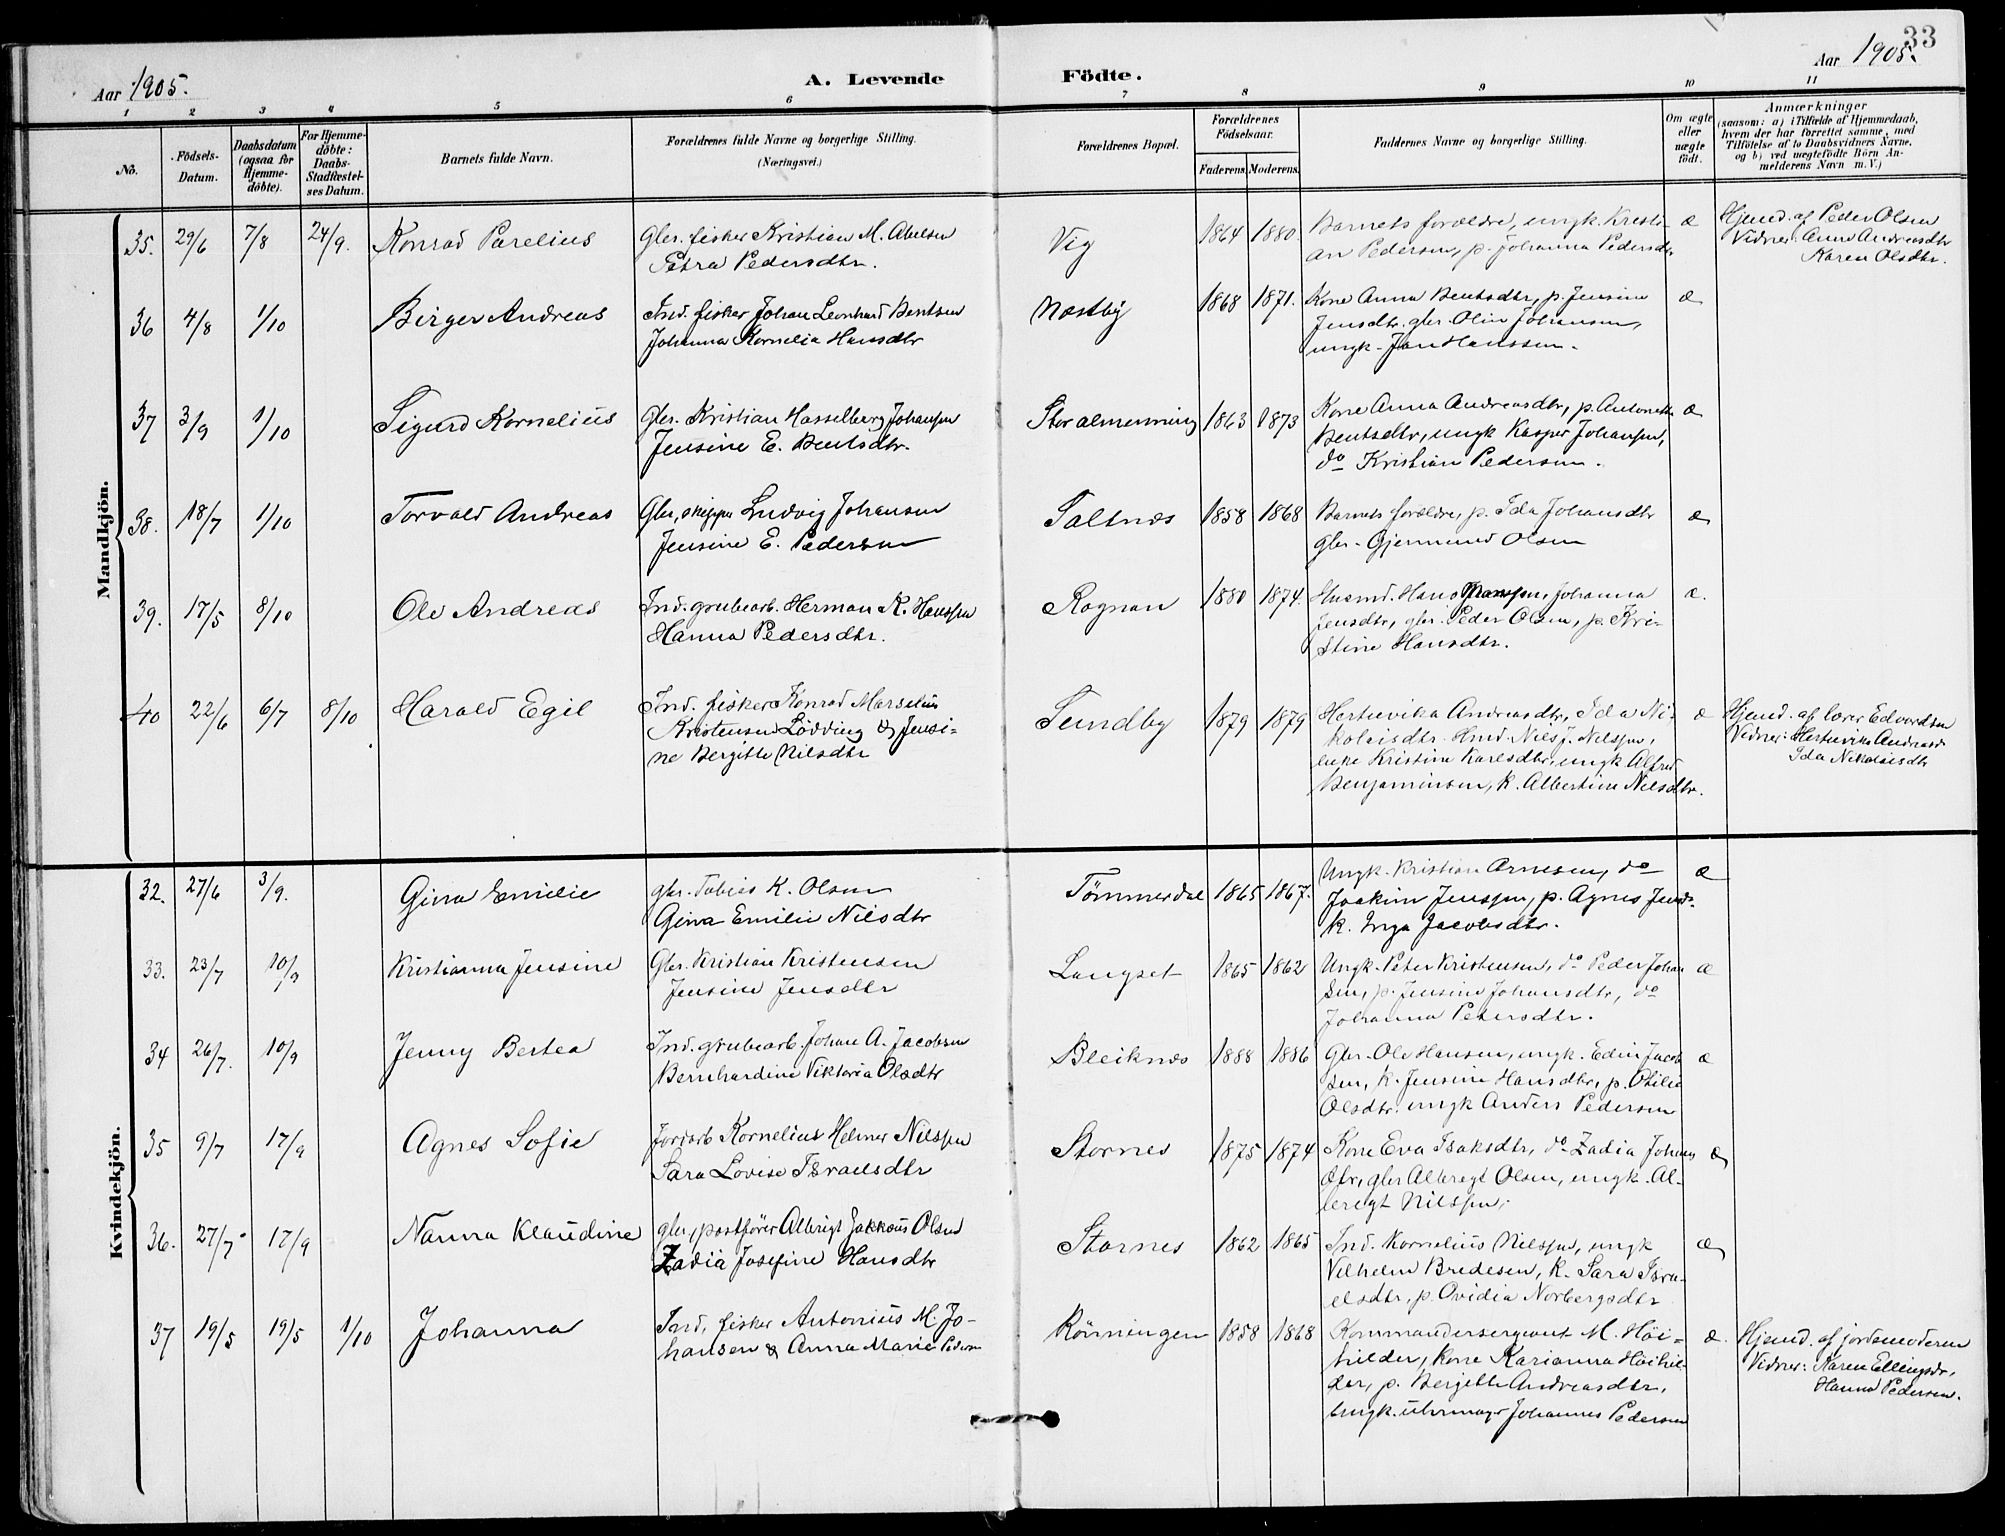 33
Aar 1905.
A. Levende Födte.
Aar 1905.
1 2 3 4 5 6 7 8 9 10 11
No.
Födsels-Datum.
Daabsdatum (ogsaa for Hjemme-döbte).
For Hjemme-döbte: Daabs-Stadfæstel-ses Datum.
Barnets fulde Navn.
Forældrenes fulde Navne og borgerlige Stilling.
(Næringsvei.)
Forældrenes Bopæl.
Forældrenes Födselsaar.
Faderens. Moderens.
Faddernes Navne og borgerlige Stilling.
Om ægte eller uægte födt.
Anmærkninger
(saasom: a) i Tilfælde af Hjemmedaab,
hvem der har forrettet samme, med
Tilföielse af to Daabsvidners Navne,
og b) ved uægtefödte Börn An-
melderens Navn m. V.)
Mandkjön.
35. 29/6 7/8 24/9. Konrad Parelius
Gbr. fisker Kristian M. Abelsen
Petra Pedersdtr.
Vig 1864 1880.
Barnets forældre, ungk. Kristi-
an Pedersen, p. Johanna Pedersdtr
æ
Hjemd. af Peder Olsen
Vidner: Anna Andreasdtr
Karen Olsdtr.
36 4/8 1/10 Birger Andreas
Ind. fisker Johan Leonhard Bentsen
Johanna Kornelia Hansdtr
Næstby 1868 1871.
Kone Anna Bentsdtr, p. Jensine
Jensdtr. gbr. Olin Johansen,
ungk. Jan Hanssen.
æ
37 3/9 1/10 Sigurd Kornelius
Gbr. Kristian Hasselberg Johansen
Jensine E. Bentsdtr.
Storalmenning 1863 1873
Kone Anna Andreasdtr, p. Antonette
Bentsdtr, ungk Kasper Johansen,
do Kristian Pedersen.
æ
38. 18/7 1/10 Torvald Andreas
Gbr, skipper Ludvig Johansen
Jensine E. Pedersen
Saltnes 1858 1868
Barnets forældre, p. Ida Johansdtr
gbr. Gjermund Olsen
æ
39. 17/5 8/10 Ole Andreas
Ind. grubearb. Herman K. Hanssen
Hanna Pedersdtr.
Rognan 1880 1874.
Husmd. Hans Hanssen, Johanna
Jensdtr, gbr. Peder Olsen, p. Kri-
stine Hansdtr.
æ.
40 22/6 6/7 8/10 Harald Egil
Ind. fisker Konrad Marselius
Kristensen Lödding & Jensi-
ne Bergitte Nilsdtr
Sundby 1879 1879
Hertuevika Andreasdtr, Ida Ni-
kolaisdtr. Husmd. Nils J. Nilssen,
enke Kristine Karlsdtr, ungk Alfred
Benjaminsen, k. Albertine Nilsdtr.
æ
Hjemd. af lærer Edvardsen
Vidner: Hertuevika Andreasd
Ida Nikolaisdtr
Kvindekjön.
32. 27/6 3/9. Gina Emilie
gbr. Tobias K. Olsen
Gina Emilie Nilsdtr
Tömmerdal 1865 1867.
Ungk. Kristian Arnesen, do
Joakim Jenssen, p. Agnes Jensd.
k. Inga Jacobsdtr.
æ
33. 23/7 10/9 Kristianna Jensine
Gbr. Kristian Kristensen
Jensine Jensdtr
Langset 1865 1862
Ungk. Peter Kristensen, do Peder Johan
sen, p. Jensine Johansdtr, do
Johanna Petersdtr.
æ
34 26/7. 10/9 Jenny Bertea
Ind. grubearb. Johan A. Jacobsen
Bernhardine Viktoria Olsdtr
Bleiknes 1888 1886
Gbr. Ole Hansen, ungk. Edin Jacob
sen, k. Jensine Hansdtr, p. Otilie
Olsdtr. ungk Anders Pedersen
æ
35 9/7 17/9 Agnes Sofie
Jordarb Kornelius Helmer Nilssen
Sara Lovise Israelsdtr
Stornes 1875 1874
Kone Eva Isaksdtr, do Zadia Johans
dtr, gbr Albregt Olsen, ungk. Al-
bregt Nilssen.
æ
36. 27/7. 17/9 Nanna Klaudine
gbr, postförer Albrigt Jakkous Olsen
Zadia Josefine Hansdtr
Stornes 1862 1865
Ind. Kornelius Nilssen, ungk
Vilhelm Bredesen, k. Sara Isra-
elsdtr, p. Ovidia Norbergsdtr
æ
37 19/5 19/5 1/10 Johanna
Ind. fisker Antonius M. Jo-
hansen & Anna Marie Pedersen
Rönningen 1858 1868
Kommandersergeant M. Höi-
hilder, kone Karianna Höihil-
der, p. Bergitte Andreasdtr,
Ungk. uhrmager Johannes Pedersen
æ.
Hjemd. af jordemoderen
Vidner: Karen Ellingsdr,
Hanna Pedersen.